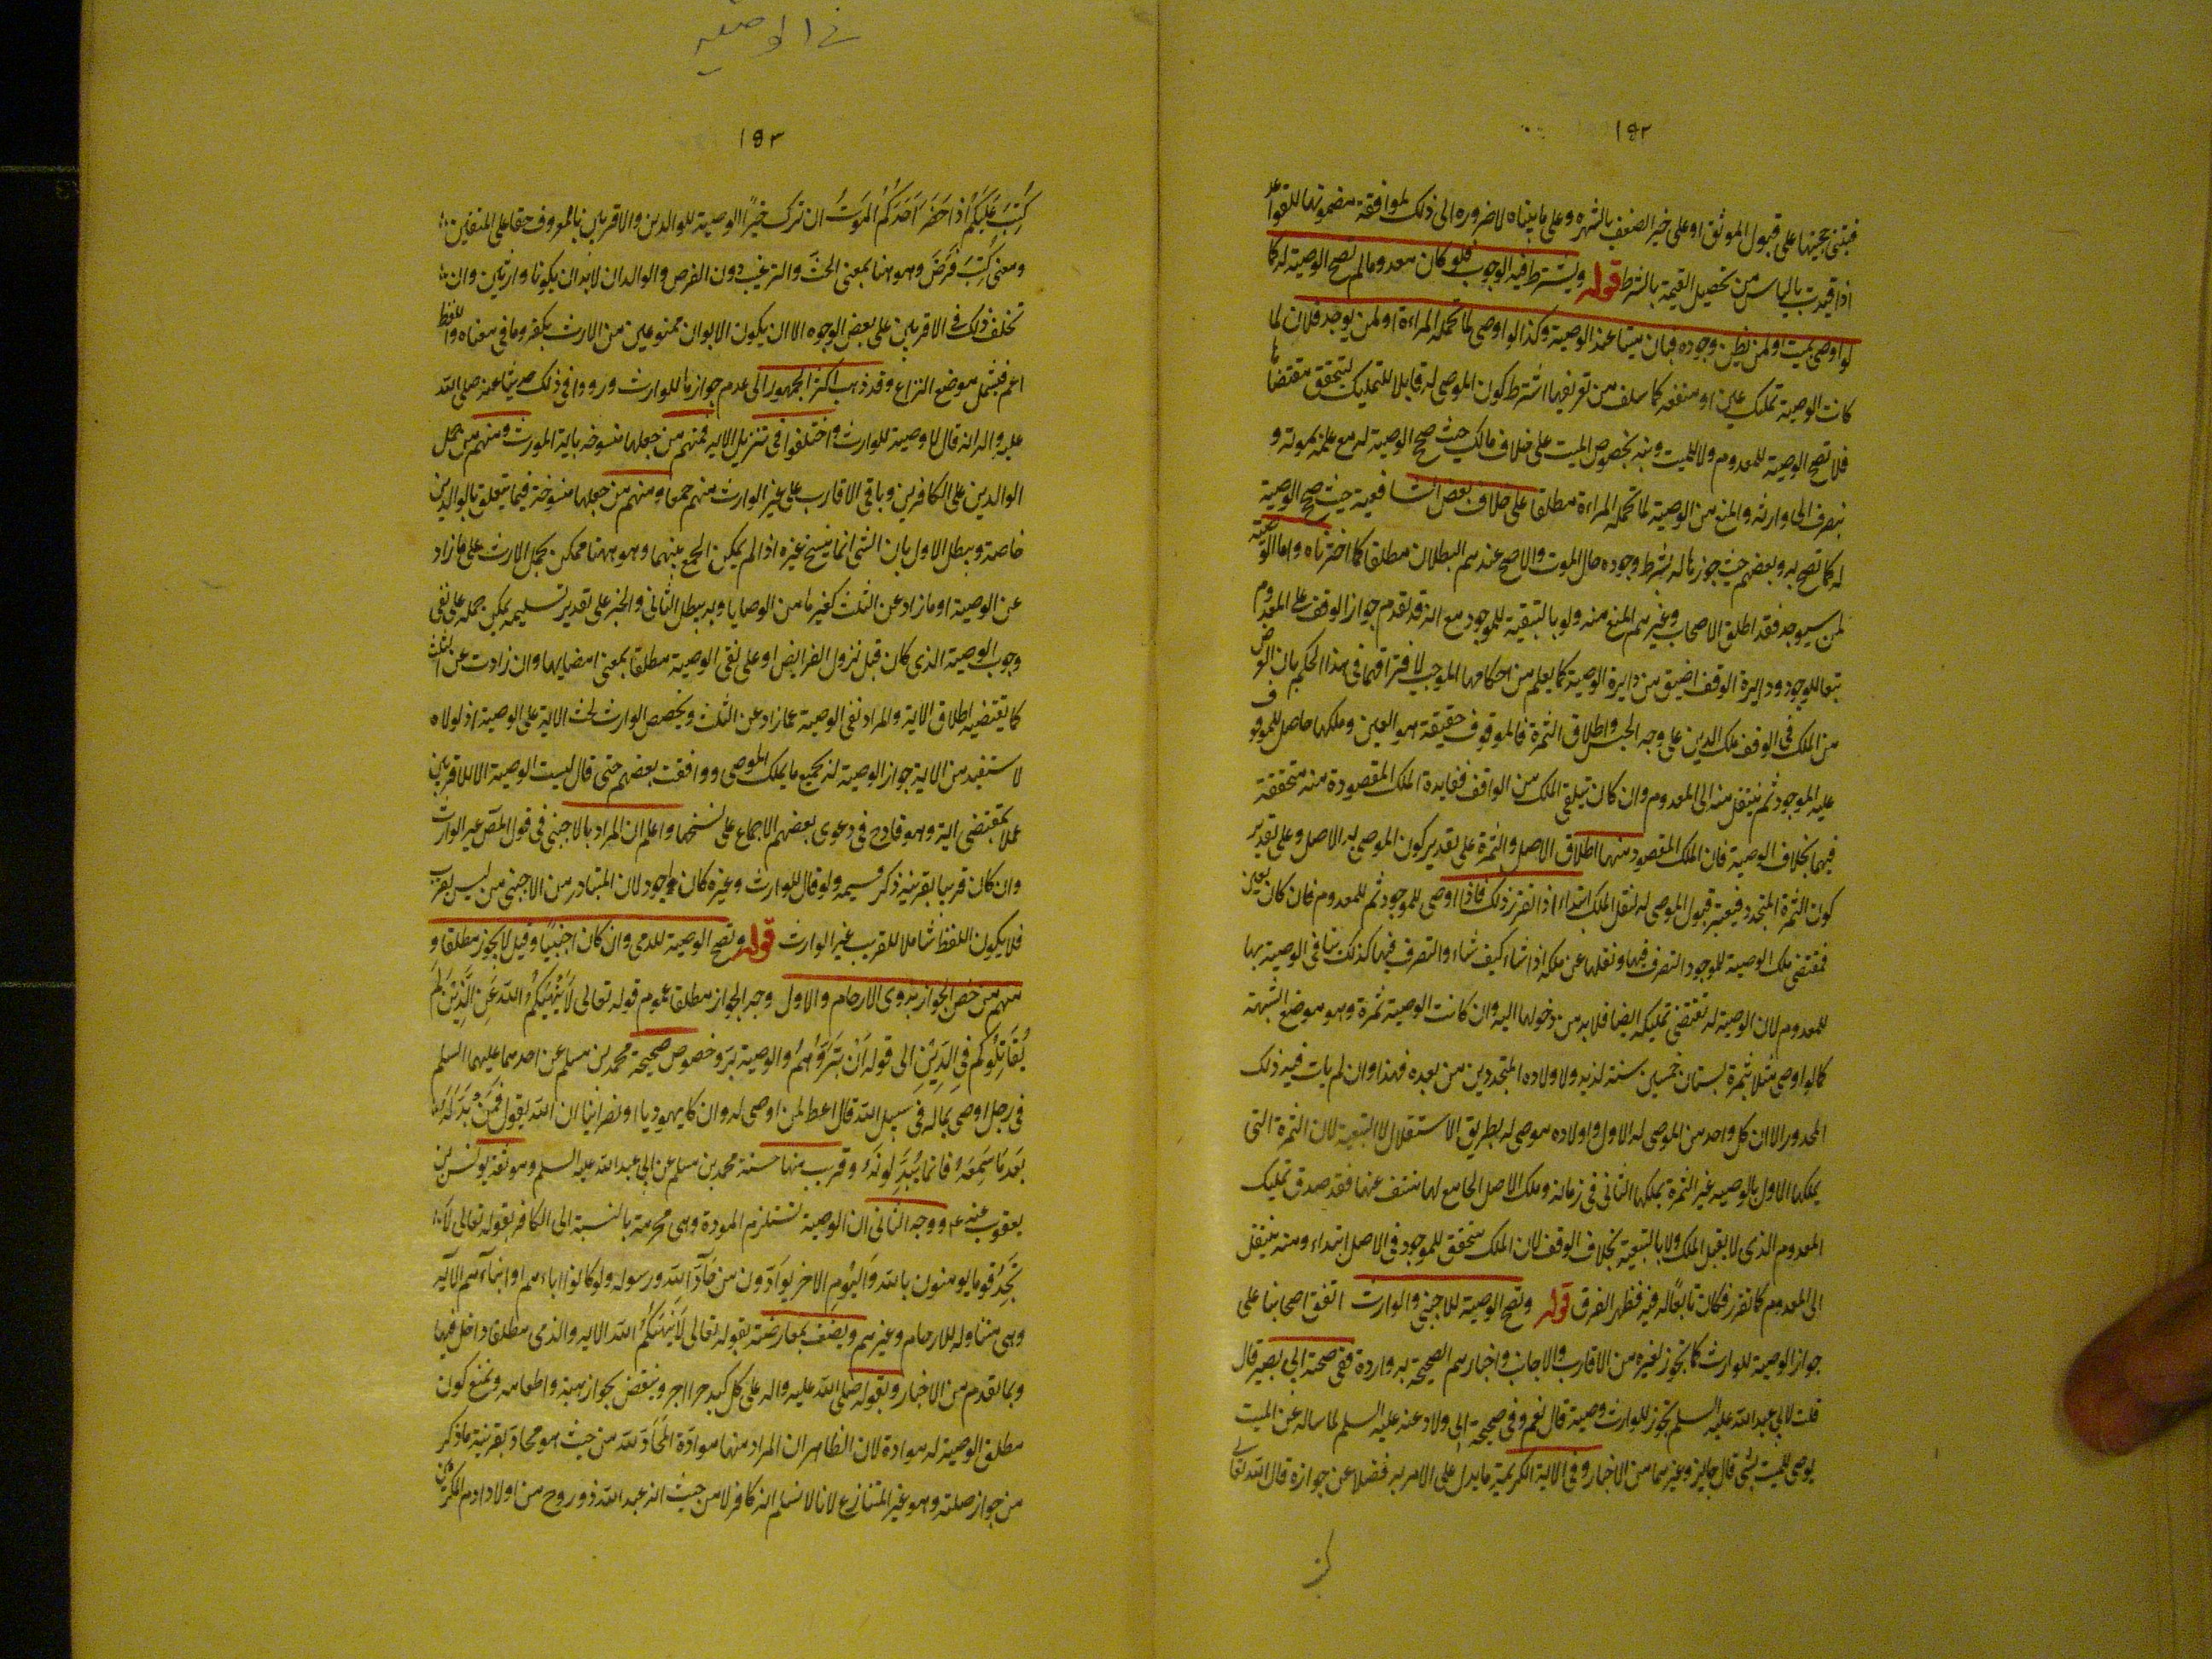 ١٥٢
فيبتنى حجيتها على قبول الموثق او على خبر الضعيف بالشهرة وعلى ما بيناه لا ضرورة الى ذلك لموافقة مضمونها للقواعد
اذا قيدت بالياس من تحصيل القيمة بالشرط قوله ويشترط فيه الوجود فلو كان معدوما لم تصح الوصية له كا
لو اوصى لميت او لمن يظن وجوده فبان ميتا عند الوصية وكذا لو اوصى لما تحمله المراءة او لمن يوجد فلان لما
كانت الوصية تمليك عين او منفعة كما سلف من تعريفها اشترط كون الموصى له قابلا للتمليك ليتحقق مقتضاها
فلا تصح الوصية للمعدوم ولا للميت ونبه بخصوص الميت على خلاف مالك حيث صحح الوصية له مع علمه بموته و
تصرف الى وارثه والمنع من الوصية لما تحمله المراءة مطلقا على خلاف بعض الشافعية حيث صحح الوصية
له كما تصح به وبعضهم حيث جوزها له بشرط وجوده حال الموت والاصح عندهم البطلان مطلقا كما اخترناه واما الوصية
لمن سيوجد فقد اطلق الاصحاب وغيرهم المنع منه ولو بالتبعية للموجود مع انه قد تقدم جواز الوقف على المعدوم
تبعا للموجود ودايرة الوقف اضيق من دايرة الوصية كما يعلم من احكامها الموجب لافتراقهما فى هذا الحكم بان الغرض
من الملك فى الوقف ملك العين على وجه الحبس واطلاق الثمرة فالموقوف حقيقة هو العين وملكها حاصل للموقوف
عليه الموجود ثم ينتقل منه الى المعدوم وان كان يتلقى الملك من الواقف ففايدة الملك المقصودة منه متحققة
فيهما بخلاف الوصية فان الملك المقصود منها اطلاق الاصل والثمرة على تقدير كون الموصى به الاصل وعلى تقدير
كون الثمرة المتجدد فيعتبر قبول الموصى له لنقل الملك ابتداء اذا تقرر ذلك فاذا اوصى للموجود ثم للمعدوم فان كان بعين
فمقتضى ملك الوصية للموجود التصرف فيها ونقلها عن ملكه اذا شاء كيف شاء والتصرف فيها كذلك ينافى الوصية بها
للمعدوم لان الوصية له تقتضى تمليكه ايضا فلا بد من دخولها اليه وان كانت الوصية ثمرة وهو موضع الشبهة
كما لو اوصى مثلا بثمرة بستان خمسين سنة لزيد ولاولاده المتجددين من بعده فهذا وان لم يات فيه ذلك
المحذور الا ان كل واحد من الموصى له الاول واولاده موصى له بطريق الاستقلال لا التبعية لان الثمرة التى
يملكها الاول بالوصية غير الثمرة يملكها الثانى فى زمانه وملك الاصل الجامع لها منتف عنها فقد صدق تمليك
المعدوم الذى لا يقبل الملك ولا بالتبعية بخلاف الوقف لان الملك متحقق للموجود فى الاصل ابتداء ومنه ينتقل
الى المعدوم كما تقرر فكان تابعا له فيه فظهر الفرق قوله وتصح الوصية للاجنبى والوارث اتفق اصحابنا على
جواز الوصية للوارث كما تجوز لغيره من الاقارب والاجانب واخبارهم الصحيحة به واردة ففى صحيحة ابى بصير قال
قلت لابى عبد الله عليه السلم تجوز للوارث وصية قال نعم وفى صحيحة ابى ولاد عنه عليه السلم لما ساله عن الميت
يوصى للميت بشى قال جايز وغيرهما من الاخبار وفى الاية الكريمة ما يدل على الامر به فضلا عن جوازه قال الله تعالى
فى الوصية
١٥٣
كُتِبَ عَلَيْكُمْ اِذَا حَضَرَ اَحَدَكُمُ الْمَوْتُ ان ترك خيرًا الوصية للوالدين والاقربين بالمعروف حقا على المتقين
ومعنى كُتِبَ فُرِضَ وهو هنا بمعنى الحث والترغيب دون الفرض والوالدان لا بد ان يكونا وارثين وان
تخلف ذلك فى الاقربين على بعض الوجوه الا ان يكون الابوان ممنوعين من الارث بكفر وما فى معناه واللفظ
اعم فيشمل موضع النزاع وقد ذهب اكثر الجمهور الى عدم جوازها للوارث ورووا فى ذلك حديثا عنه صلى الله
عليه واله انه قال لا وصية للوارث واختلفوا فى تنزيل الاية فمنهم من جعلها منسوخة باية المورث ومنهم من حمل
الوالدين على الكافرين وباقى الاقارب على غير الوارث منهم جمعا ومنهم من جعلها منسوخة فيما يتعلق بالوالدين
خاصة ويبطل الاول بان الشى انما ينسخ غيره اذا لم يمكن الجمع بينهما وهو ههنا ممكن بحمل الارث على ما زاد
عن الوصية او ما زاد عن الثلث كغيرها من الوصايا وبه يبطل الثانى والخبر على تقدير تسليمه يمكن حمله على نفى
وجوب الوصية الذى كان قبل نزول الفرايض او على نفى الوصية مطلقا بمعنى امضايها وان زادت عن الثلث
كما يقتضيه اطلاق الاية والمراد نفى الوصية عما زاد عن الثلث وتخصص الوارث لحث الاية على الوصية اذ لولاه
لاستفيد من الاية جواز الوصية له بجميع ما يملك الموصى ووافقنا بعضهم حتى قال ليست الوصية الا للاقربين
عملا بمقتضى الية وهو قادح فى دعوى بعضهم الاجماع على نسخها واعلم ان المراد بالاجنبى فى قول المص غير الوارث
وان كان قريبا بقرينة ذكر قسيمه ولو قال للوارث وغيره كان اجود لان المتبادر من الاجنبى من ليس بقريب
فلا يكون اللفظ شاملا للقريب غير الوارث قوله وتصح الوصية للذمى وان كان اجنبيا وقيل لا يجوز مطلقا و
منهم من خص الجواز بذوى الارحام والاول وجه الجواز مطلقا عموم قوله تعالى لَا يَنْهٰيكُمُ اللّٰهُ عَنِ الَّذِينَ لَمْ
يُقَاتِلُوكُمْ فِى الدِّينِ الى قوله اَنْ تَبَرُّوهُمْ والوصية بر وخصوص صحيحة محمد بن مسلم عن احدهما عليهما السلم
فى رجل اوصى بماله فى سبيل الله قال اعط لمن اوصى له وان كا يهوديا او نصرانيا ان الله يقول فَمَنْ بَدَّلَهُ
بَعْدَ مَا سَمِعَهُ فانما يُبَدِّلُونَهُ وقريب منها حسنة محمد بن مسلم عن ابى عبد الله عليه السلم وموثقة يونس بن
يعقوب عنه ع ووجه الثانى ان الوصية تستلزم المودة وهى محرمة بالنسبة الى الكافر بقوله تعالى لا
تَجِدُ قوما يومنون بالله وَالْيَوْمِ الاخر يوادّون من حَآدَّ الله ورسوله ولو كانوا اباءهم او ابناءهم الاية
وهى متناوله للارحام وغيرهم ويضعف بمعارضته بقوله تعالى لَا يَنْهٰيكُمُ الله الاية والذمى مطلقا داخل فيها
وبما تقدم من الاخبار وبقوله صلى الله عليه واله على كل كبد حرا اجر وينقض بجواز هبته واطعامه ونمنع كون
مطلق الوصية له موادة لان الظاهر ان المراد منها موادّة المُحَادّ لله من حيث هو محادّ بقرينة ما ذكر
من جواز صلته وهو غير المتنازع لانا لا نسلم انه كافر لا من حيث انه عبد الله ذو روح من اولاد ادم المكرمين